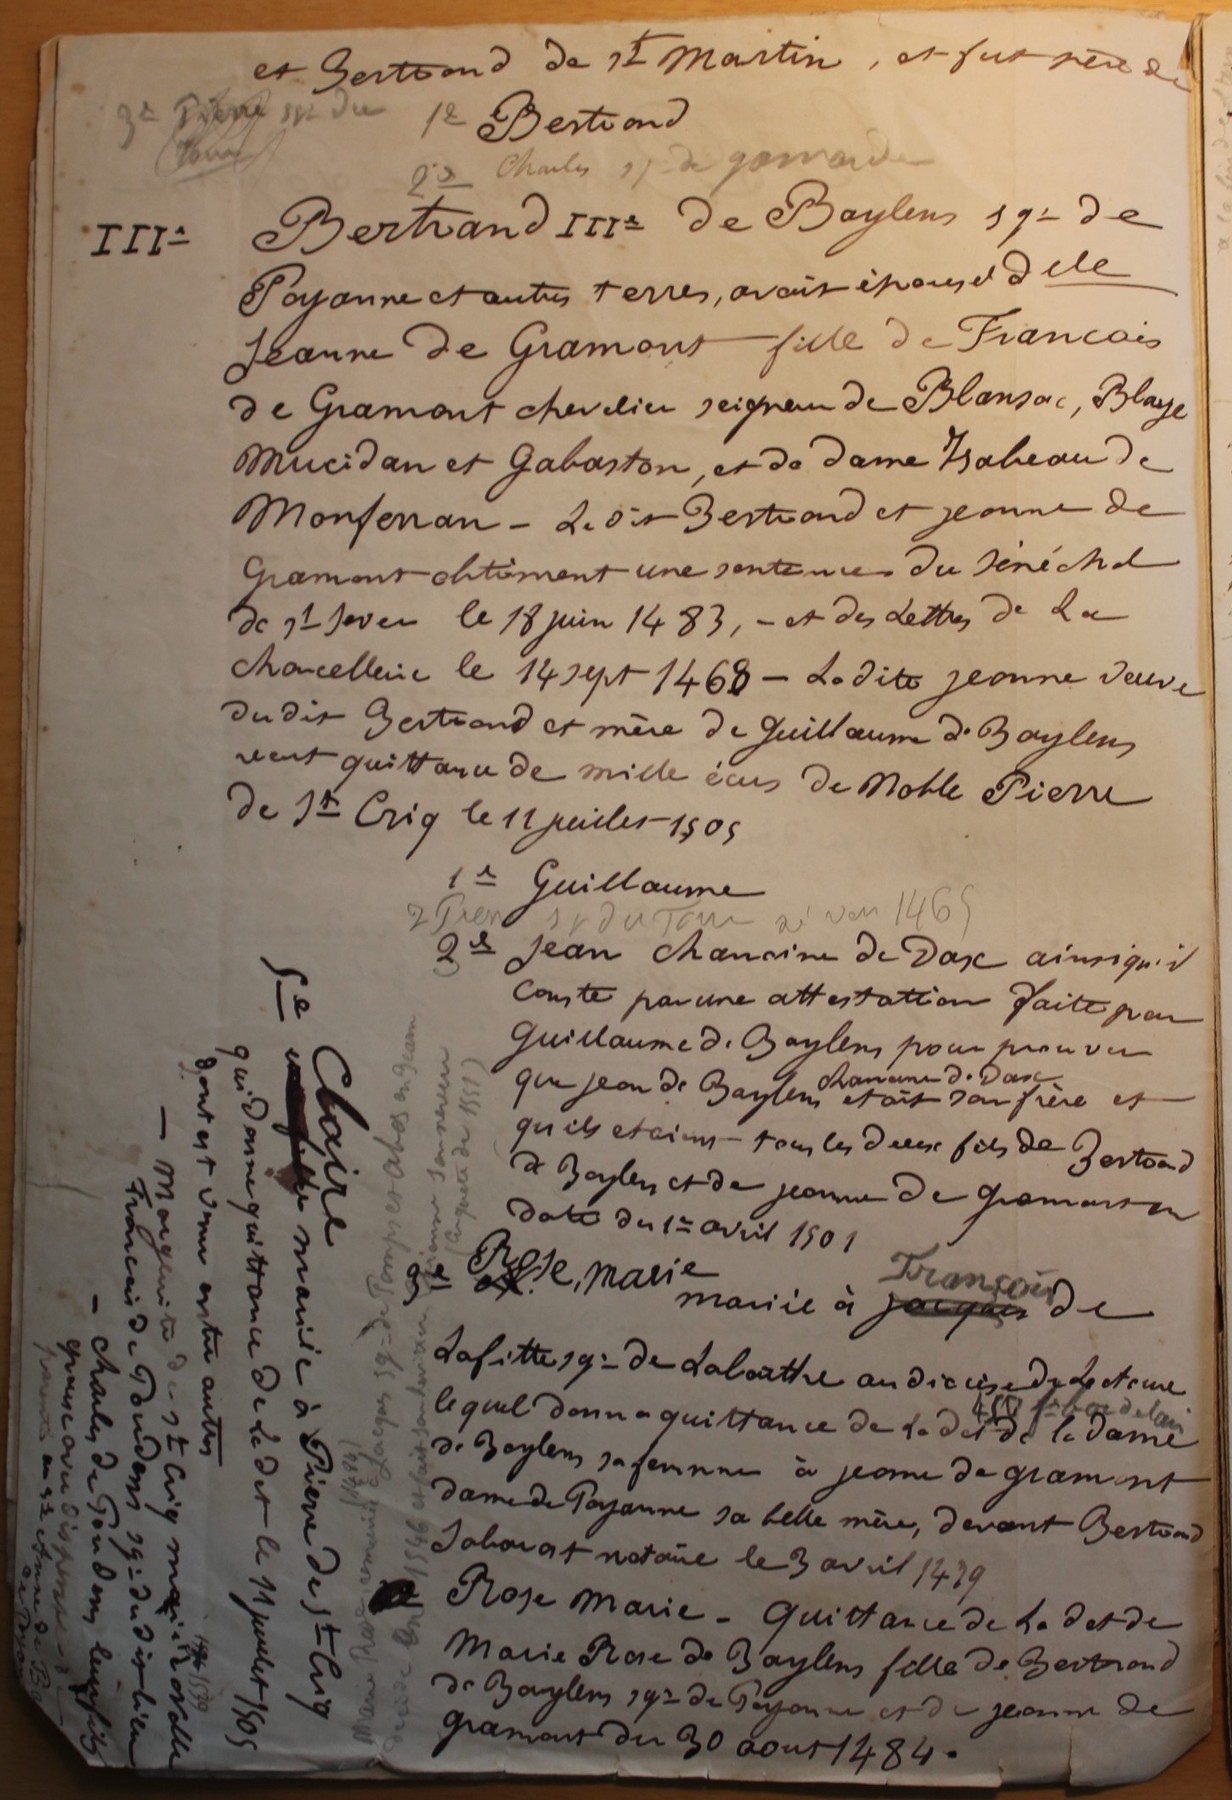 et Bertrand de St Martin, et fut père de
3e Pierre sgr du
1e Bertrand
2e Charles sgr de gamarde
IIIe Bertrand IIIe de Baylens sgr de
Poyanne et autres terres, avait épousé dlle
Jeanne de Gramont fille de Francois
de Gramont chevelier seigneur de Blansac, Blaye
Mucidan et Gabaston, et de dame Isabeau de
Monferran - Le dit Bertrand et jeanne de
Gramont obtiennent une sentence du Sénéchal
de St Sever le 18 juin 1483, - et des Lettres de La
chancellerie le 14 sept 1468 - La dite jeanne veuve
du dit Bertrand et mère de Guillaume de Baylens
recut quittance de mille écus de Noble Pierre
de St Criq le 11 juillet 1505
1e Guillaume
2 Pierre sgr du Tour né vers 1465
2e Jean chanoine de Dax ainsi qu'il
conste par une attestation faite par
Guillaume de Baylens pour prouver
que jean de Baylens chanoine de Dax etait son frère et
qu'ils etaient tous les deux fils de Bertrand
de Baylens et de jeanne de gramont en
date du 1er avril 1501
3e Rose, Marie
mariée à jacques François de
Lafitte sgr de Labarthe au diocèse de Lectoure
lequel donna quittance de La dot de la dame
de Baylens sa femme à jeanne de gramont
dame de Poyanne sa belle mère, devant Bertrand
notaire le 3 avril 1479
Rose Marie - Quittance de La dot de
Marie Rose de Baylens fille de Bertrand
de Baylens sgr de Poyanne et de jeanne de
gramont du 30 aout 1484.
5e Claire mariée à Pierre de St Criq
qui donne quittance de La dot le 11 juillet 1505
dont est venu entre autres
- Marguerite de St Criq mariée
Francois de Poudens sgr du dit lieu
- Charles de Poudens leur fils